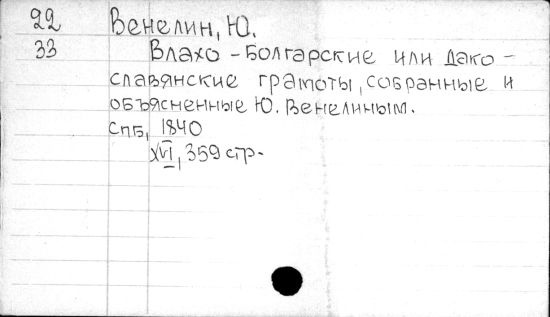 22 Венелин, Ю.
33 Влахо-Болгарские или Дако-
славянские грамоты, собранные и
объясненные Ю. Венелиным.
Спб, 1840
XVI, 359 стр.